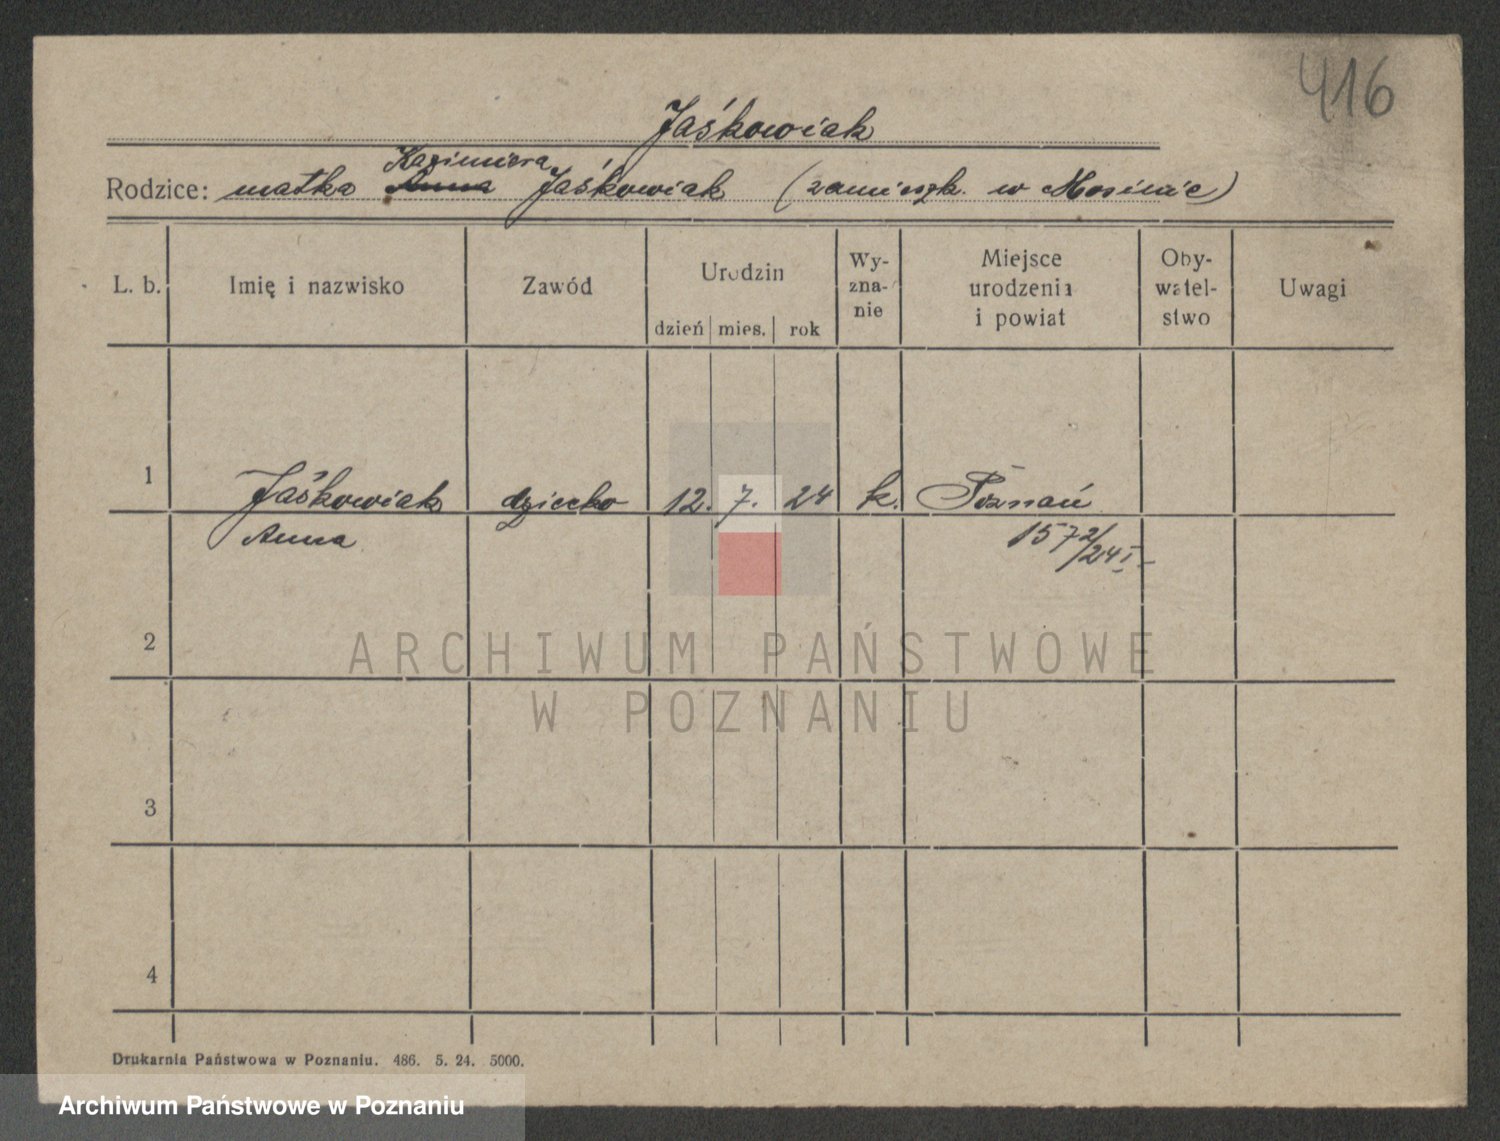 416
Jaśkowiak
Kazimiera
Rodzice: matka Anna Jaśkowiak (zamieszk. w Mosinie)
L. b. Imię i nazwisko Zawód Urodzin dzień mies. rok Wy-zna-nie Miejsce urodzenia i powiat Oby-watel-stwo Uwagi
1 Jaśkowiak dziecko 12. 7. 24 k. Poznań
Anna 1572/24 I.
2
ARCHIWUM PAŃSTWOWE
W POZNANIU
3
4
Drukarnia Państwowa w Poznaniu. 486. 5. 24. 5000.
Archiwum Państwowe w Poznaniu